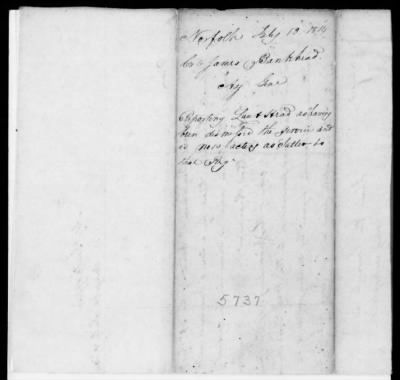 Norfolk July 13 1814
Col James Bankhead
Adj Gen
Reporting Lieut Head as having
been dismissed the service and
is now acting as Sutler to
that Regt
5737